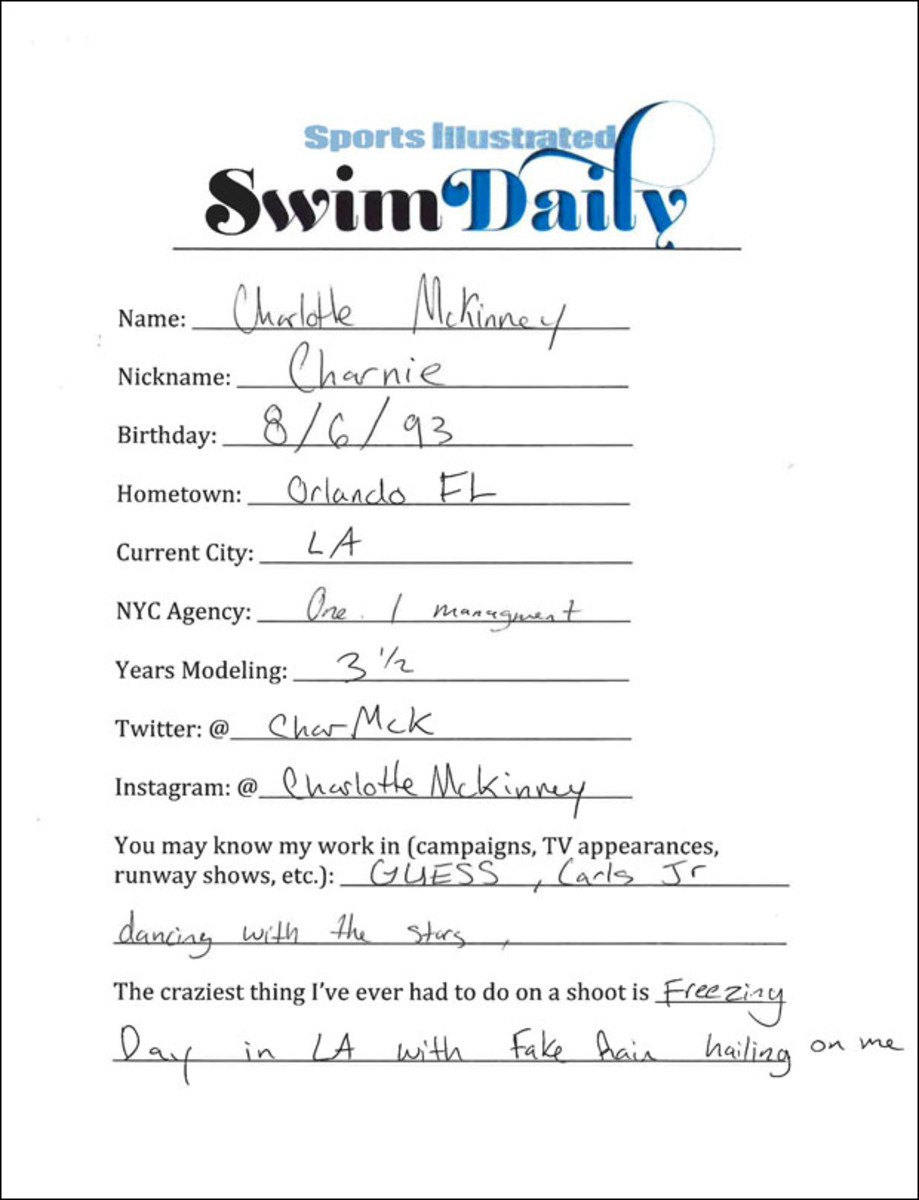 Sports Illustrated
Swim Daily
Name: Charlotte McKinney
Nickname: Charnie
Birthday: 8/6/93
Hometown: Orlando FL
Current City: LA
NYC Agency: One. 1 managment
Years Modeling: 3 1/2
Twitter: @ CharMck
Instagram: @ CharlotteMckinney
You may know my work in (campaigns, TV appearances,
runway shows, etc.): GUESS, Carls Jr
dancing with the stars,
The craziest thing I've ever had to do on a shoot is Freezing
Day in LA with Fake hair hailing on me